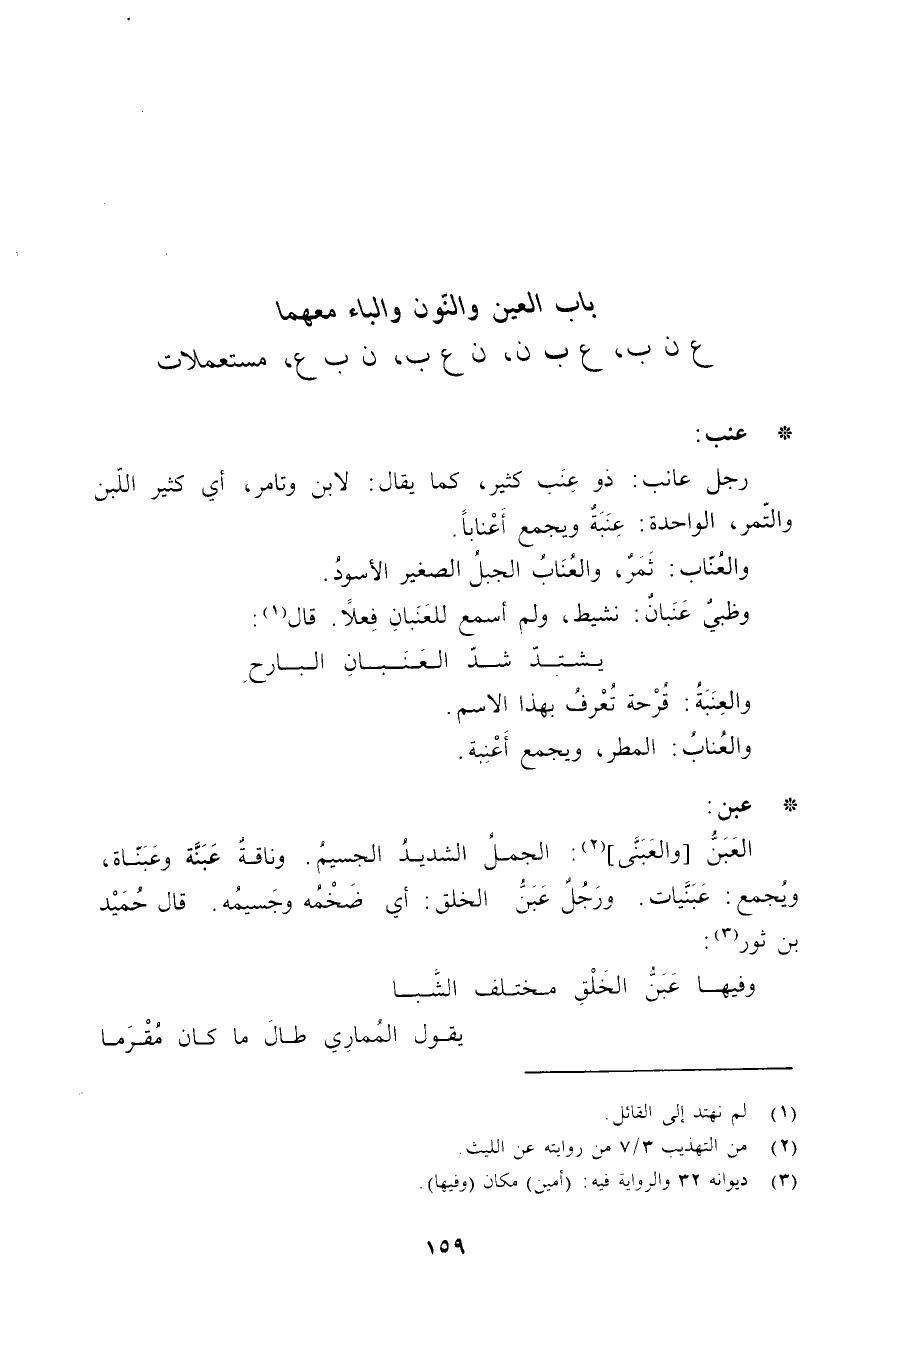 باب العين والنّون والباء معهما
ع ن ب، ع ب ن، ن ع ب، ن ب ع، مستعملات
* عنب:
رجل عانب: ذو عِنَب كثير، كما يقال: لابن وتامر، أي كثير اللّبن
والتّمر، الواحدة: عِنَبَةٌ ويجمع أَعْناباً.
والعُنّاب: ثَمَرٌ، والعُنَابُ الجبلُ الصغير الأسودُ.
وظبيٌ عَنَبانٌ: نشيط، ولم أسمع للعَنَبانِ فِعلاً. قال(١):
يـشـتـدّ شـدّ العَـنَـبـانِ البـارحِ
والعِنَبَةُ: قُرْحة تُعْرفُ بهذا الاسم.
والعُنابُ: المطر، ويجمع أَعْنِبة.
* عبن:
العَبَنُّ [والعَبَنَّى](٢): الجملُ الشديدُ الجسيمُ. وناقةٌ عَبَنَّة وعَبَنّاة،
ويُجمع: عَبَنَّيات. ورَجُلٌ عَبَنُّ الخلق: أي ضَخْمُه وجَسيمُه. قال حُمَيْد
بن ثور(٣):
وفيهـا عَبَنُّ الخَلْقِ مختلف الشَّبـا
يقول المُمارِي طالَ ما كان مُقْرَما
(١) لم نهتد إلى القائل.
(٢) من التهذيب ٧/٣ من روايته عن الليث.
(٣) ديوانه ٣٢ والرواية فيه: (أمين) مكان (وفيها).
١٥٩